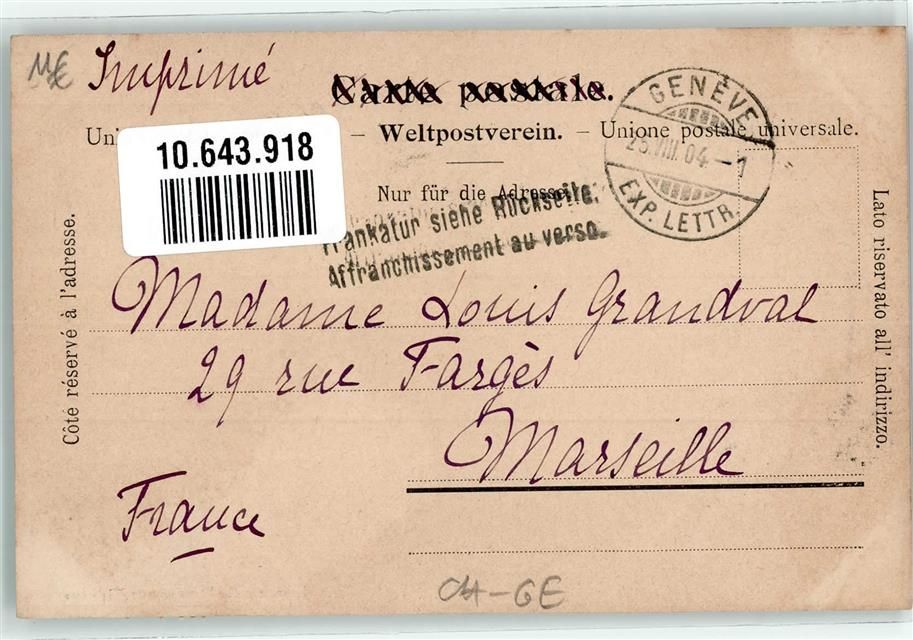 ME Imprimé
Carte postale.
10.643.918
Un
– Weltpostverein. – Unione postale universale.
Nur für die Adresse.
GENÈVE
25.VIII.04–1
EXP. LETTR.
Frankatur siehe Rückseite.
Affranchissement au verso.
Côté réservé à l'adresse.
Lato riservato all' indirizzo.
Madame Louis Grandval
29 rue Fargès
Marseille
France
CH-GE